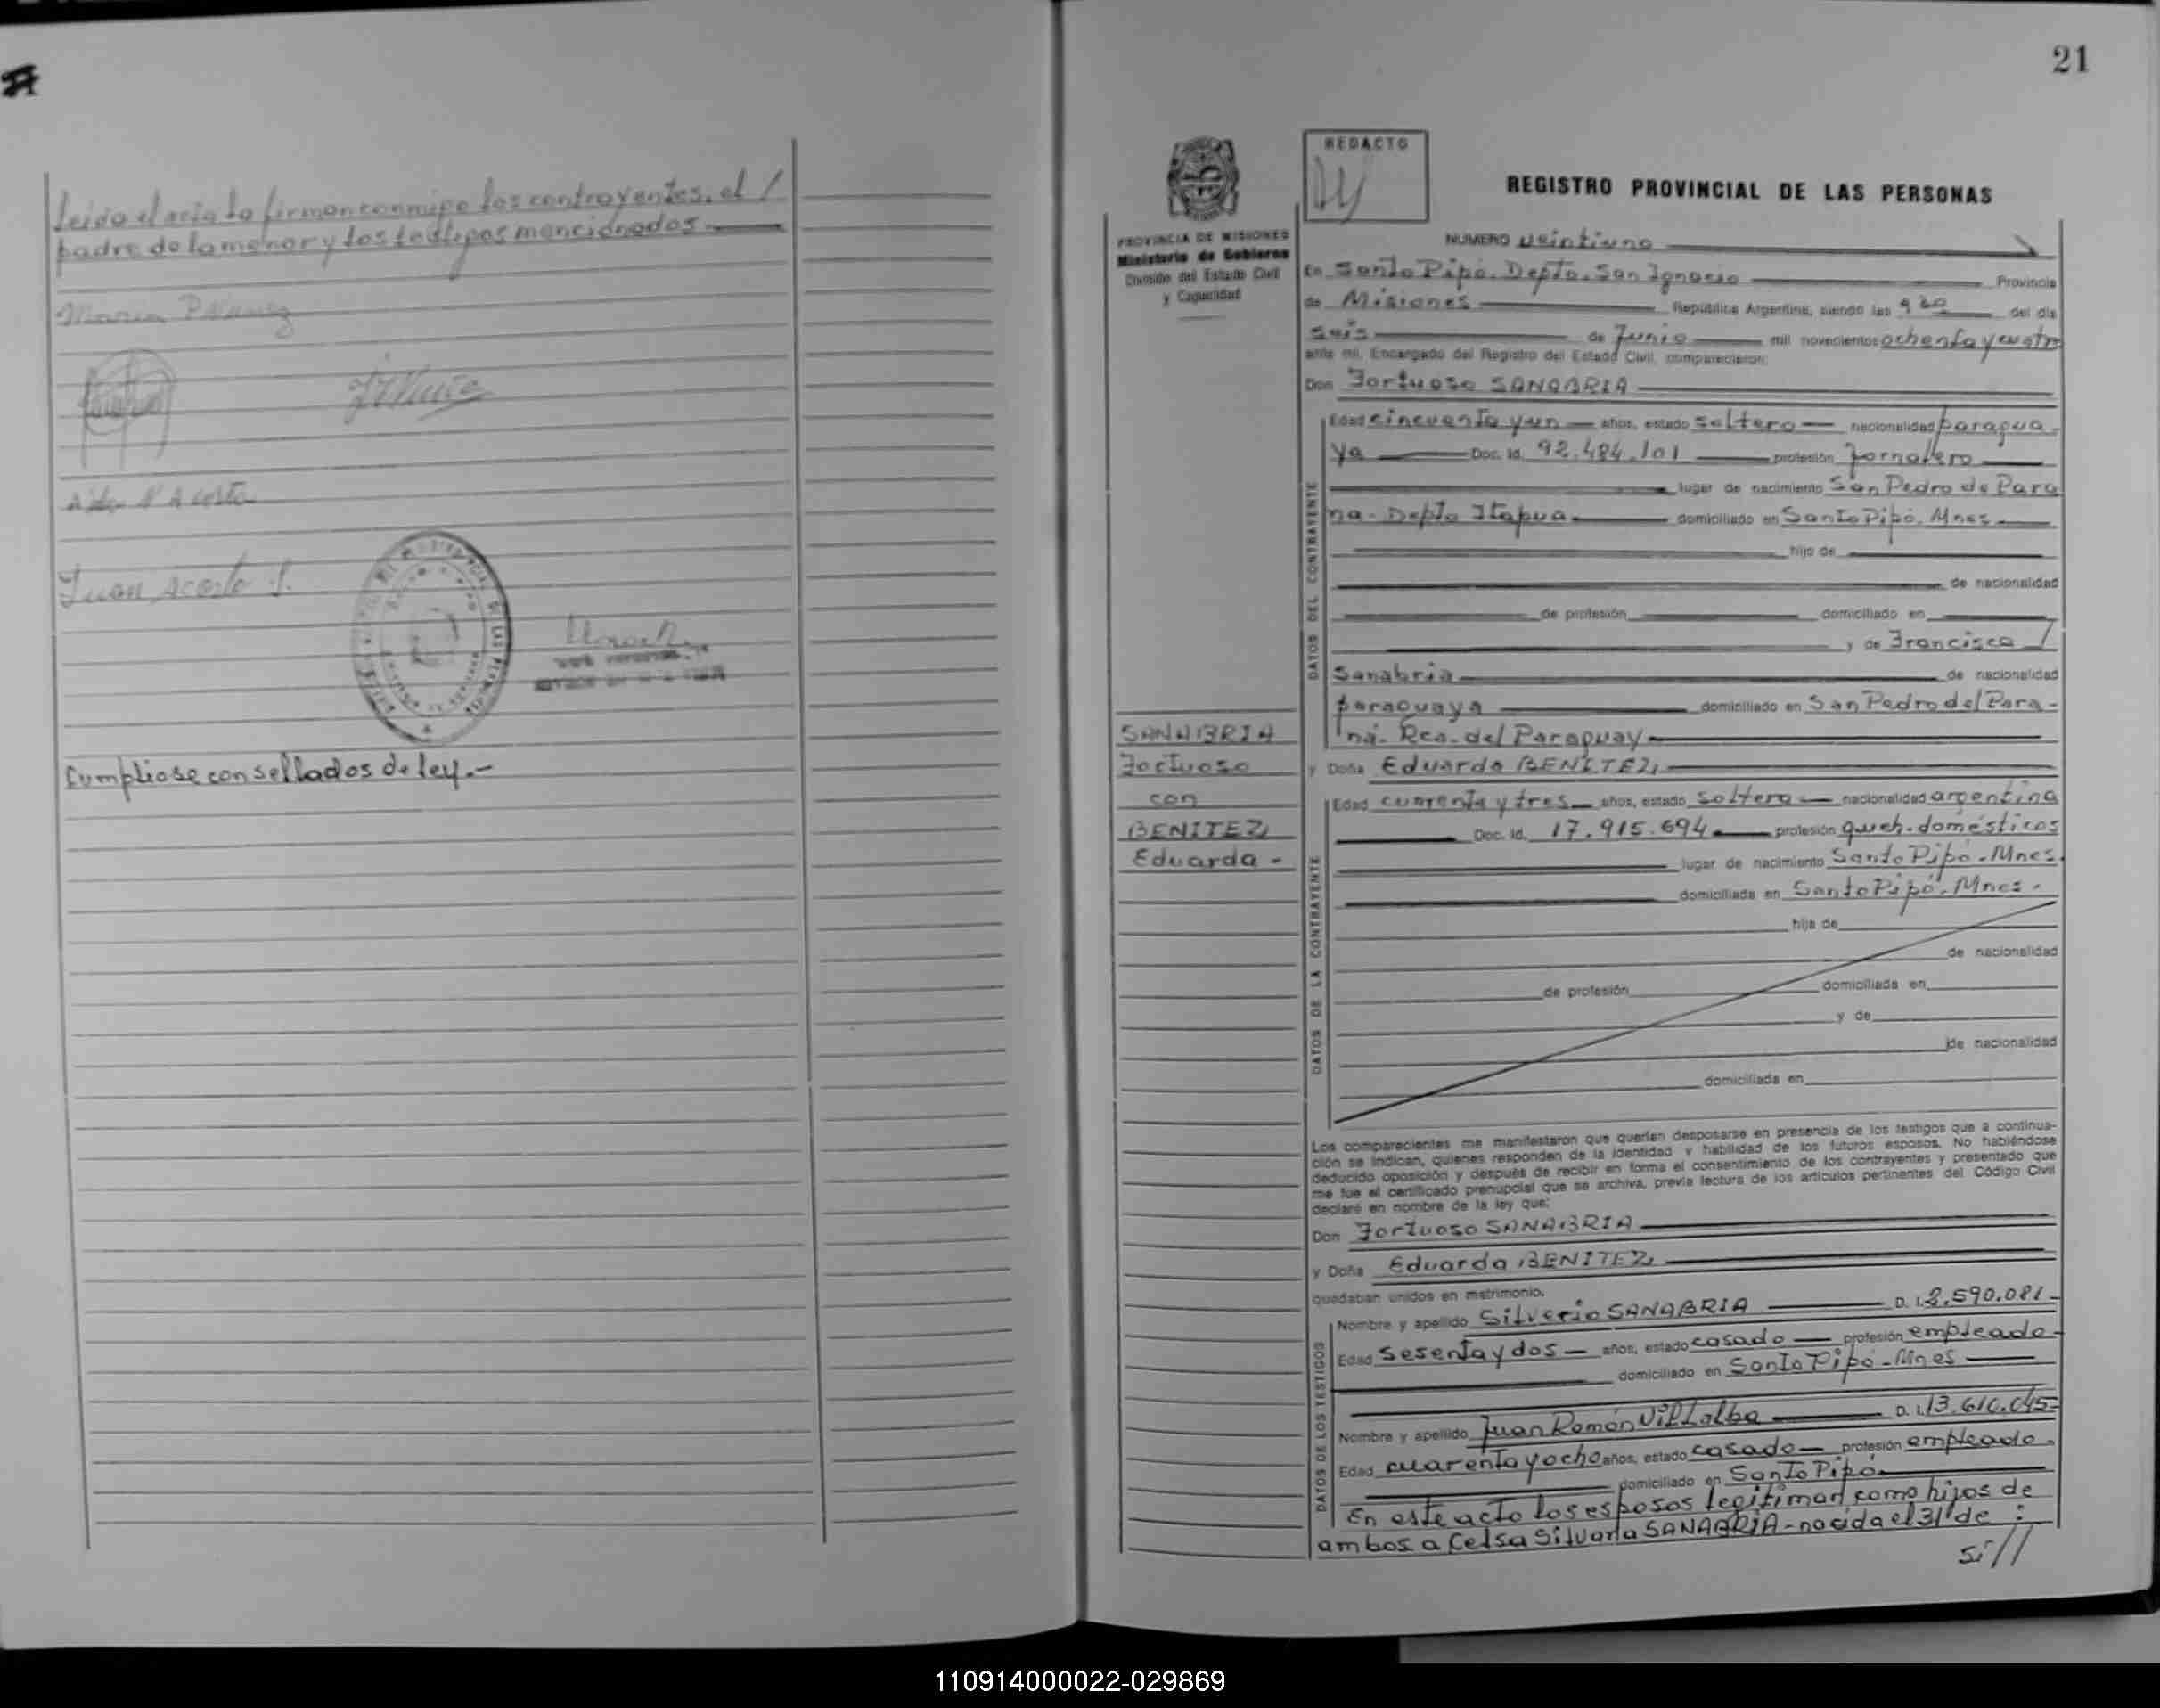 Leida el acta la firman conmigo los contrayentes, el /
padre de la menor y los testigos mencionados.
Juan Acosta S.
Cumpliose con sellados de ley.-
21
REDACTO
REGISTRO PROVINCIAL DE LAS PERSONAS
PROVINCIA DE MISIONES
Ministerio de Gobierno
División del Estado Civil
y Capacidad
NUMERO veintiuno
En Santo Pipó. Depto. San Ignacio Provincia
de Misiones República Argentina, siendo las 9 30 del día
seis de Junio mil novecientos ochenta y cuatro
ante mí, Encargado del Registro del Estado Civil, comparecieron:
Don Fortuoso SANABRIA
DATOS DEL CONTRAYENTE
Edad cincuenta y un años, estado soltero nacionalidad paragua
ya Doc. Id. 92.484.101 profesión Jornalero
lugar de nacimiento San Pedro de Para
na- Depto Itapua domiciliado en Santo Pipó. Mnes
hijo de
de nacionalidad
de profesión domiciliado en
y de Francisca /
Sanabria de nacionalidad
paraguaya domiciliado en San Pedro del Para-
ná- Rca. del Paraguay
SANABRIA
Fortuoso
con
BENITEZ
Eduarda -
y Doña Eduarda BENITEZ
DATOS DE LA CONTRAYENTE
Edad cuarenta y tres años, estado soltera nacionalidad argentina
Doc. Id. 17.915.694 profesión queh. domésticos
lugar de nacimiento Santo Pipó - Mnes.
domiciliada en Santo Pipó. Mnes.
hija de
de nacionalidad
de profesión domiciliada en
y de
de nacionalidad
domiciliada en
Los comparecientes me manifestaron que querían desposarse en presencia de los testigos que a continua-
ción se indican, quienes responden de la identidad y habilidad de los futuros esposos. No habiéndose
deducido oposición y después de recibir en forma el consentimiento de los contrayentes y presentado que
me fue el certificado prenupcial que se archiva, previa lectura de los artículos pertinentes del Código Civil
declaré en nombre de la ley que:
Don Fortuoso SANABRIA
y Doña Eduarda BENITEZ
quedaban unidos en matrimonio.
DATOS DE LOS TESTIGOS
Nombre y apellido Silverio SANABRIA D. I. 2.590.081
Edad Sesenta y dos años, estado casado profesión empleado
domiciliado en Santo Pipó - Mnes
Nombre y apellido Juan Ramón Villalba D. I. 13.616.045
Edad cuarenta y ocho años, estado casado profesión empleado
domiciliado en Santo Pipó
En este acto los esposos legitiman como hijos de
ambos a Celsa Silvana SANABRIA - nacida el 31 de :
si//
110914000022-029869